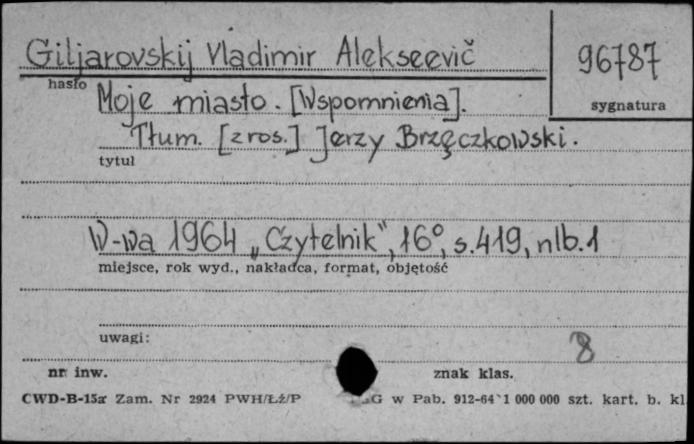 Giljarovskij Vladimir Alekseevič
96787
hasło
sygnatura
Moje miasto. [Wspomnienia].
Tłum. [z ros.] Jerzy Brzęczkowski.
tytuł
W-wa 1964 „Czytelnik", 16°, s. 419, nlb. 1
miejsce, rok wyd., nakładca, format, objętość
uwagi:
8
nr inw.
znak klas.
CWD-B-15a Zam. Nr 2924 PWH/Łż/P G w Pab. 912-64 1 000 000 szt. kart. b. kl